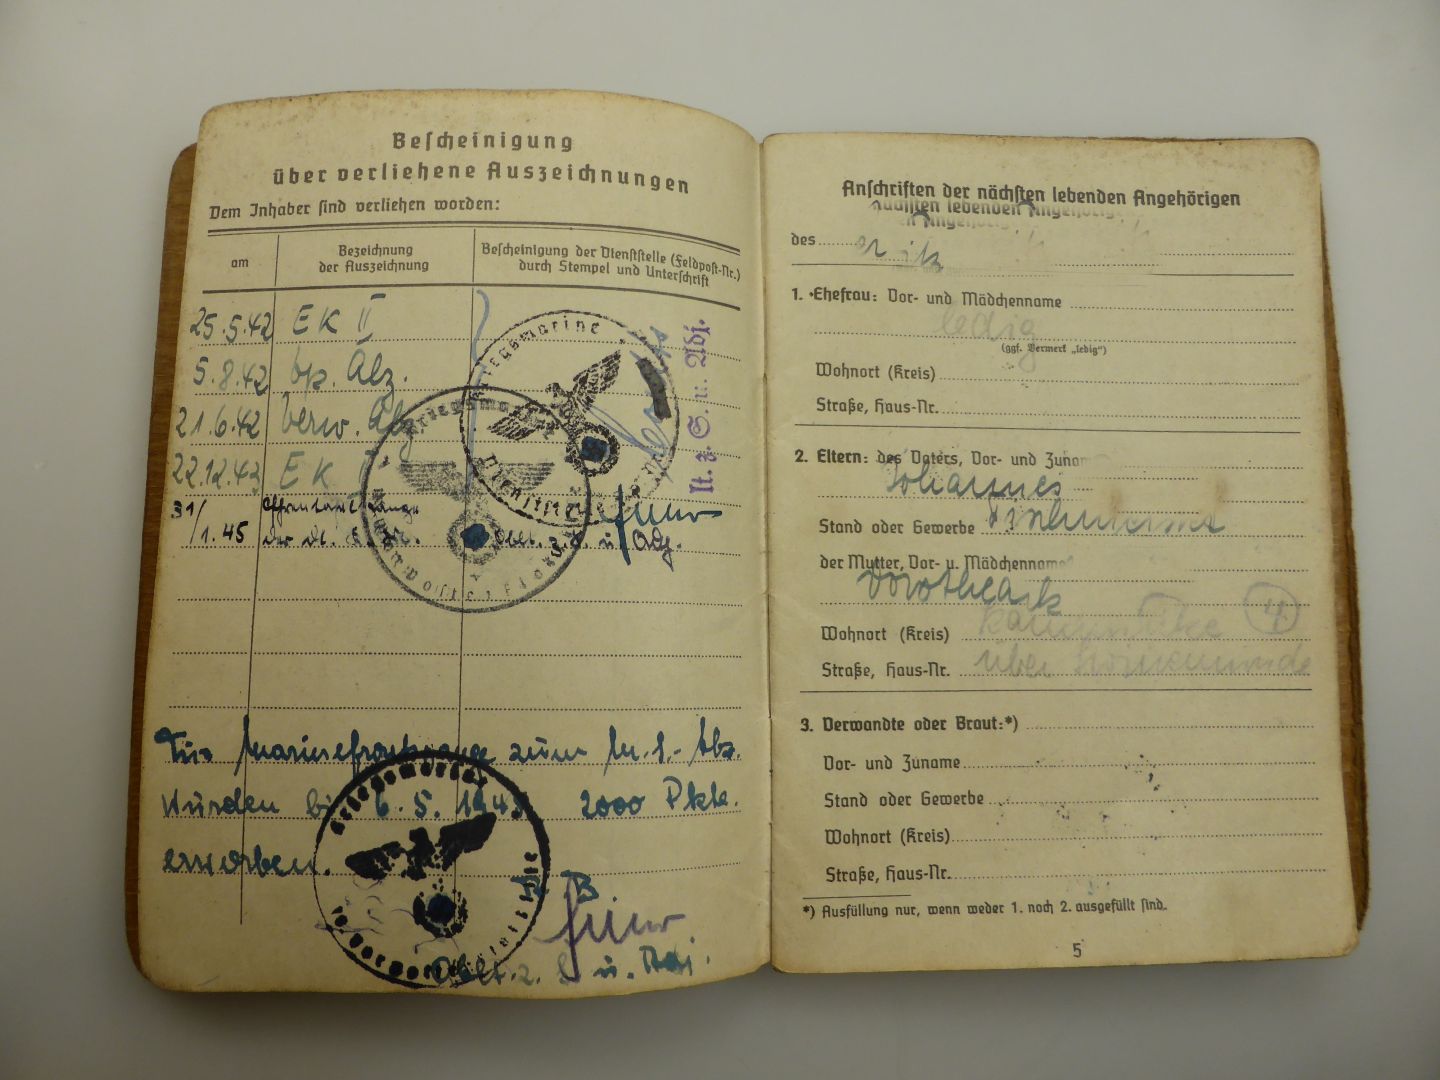 Bescheinigung
über verliehene Auszeichnungen
Dem Inhaber sind verliehen worden:
am
Bezeichnung
der Auszeichnung
Bescheinigung der Dienststelle (Feldpost-Nr.)
durch Stempel und Unterschrift
25.5.42 EK II
5.8.42 bp. Abz.
21.6.42 Verw. Abz.
22.12.43 EK I
31/1.45
der dt.
Oblt. z. S. u. Adj.
lt. z. S. u. Adj.
Kriegsmarine
Kriegsmarine
Für Marinefrontspange zum
Wurden bis 6.5. 2000 Pkte.
erworben.
Kriegsmarine
Oblt. z. S. u. Adj.
Anschriften der nächsten lebenden Angehörigen
des
1. Ehefrau: Vor- und Mädchenname
ledig
(ggf. Vermerk „ledig“)
Wohnort (Kreis)
Straße, Haus-Nr.
2. Eltern: des Vaters, Vor- und Zuna
Johannes
Stand oder Gewerbe
der Mutter, Vor- u. Mädchenname
Dorothea
Wohnort (Kreis)
4
Straße, Haus-Nr. über Swinemünde
3. Verwandte oder Braut:*)
Vor- und Zuname
Stand oder Gewerbe
Wohnort (Kreis)
Straße, Haus-Nr.
*) Ausfüllung nur, wenn weder 1. noch 2. ausgefüllt sind.
5